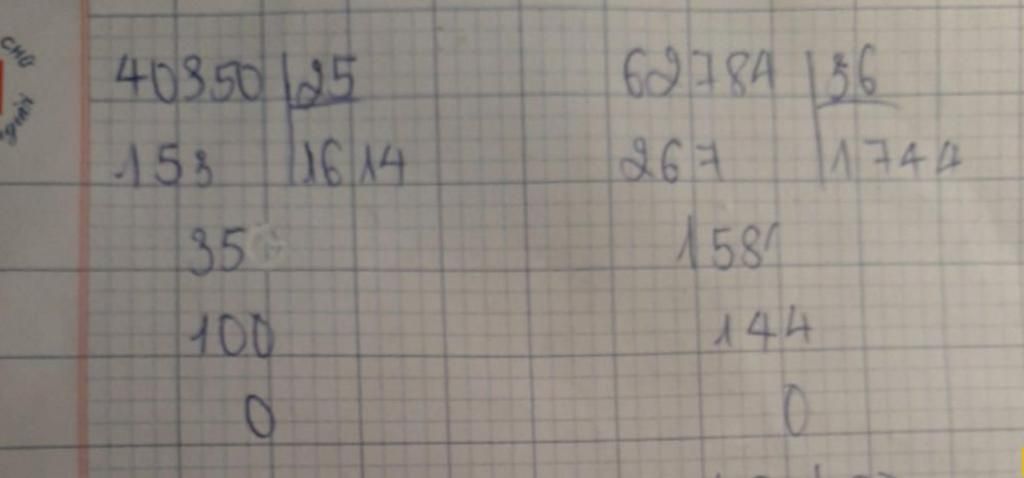 40350 25
153 1614
350
100
0
62784 36
267 1744
158
144
0